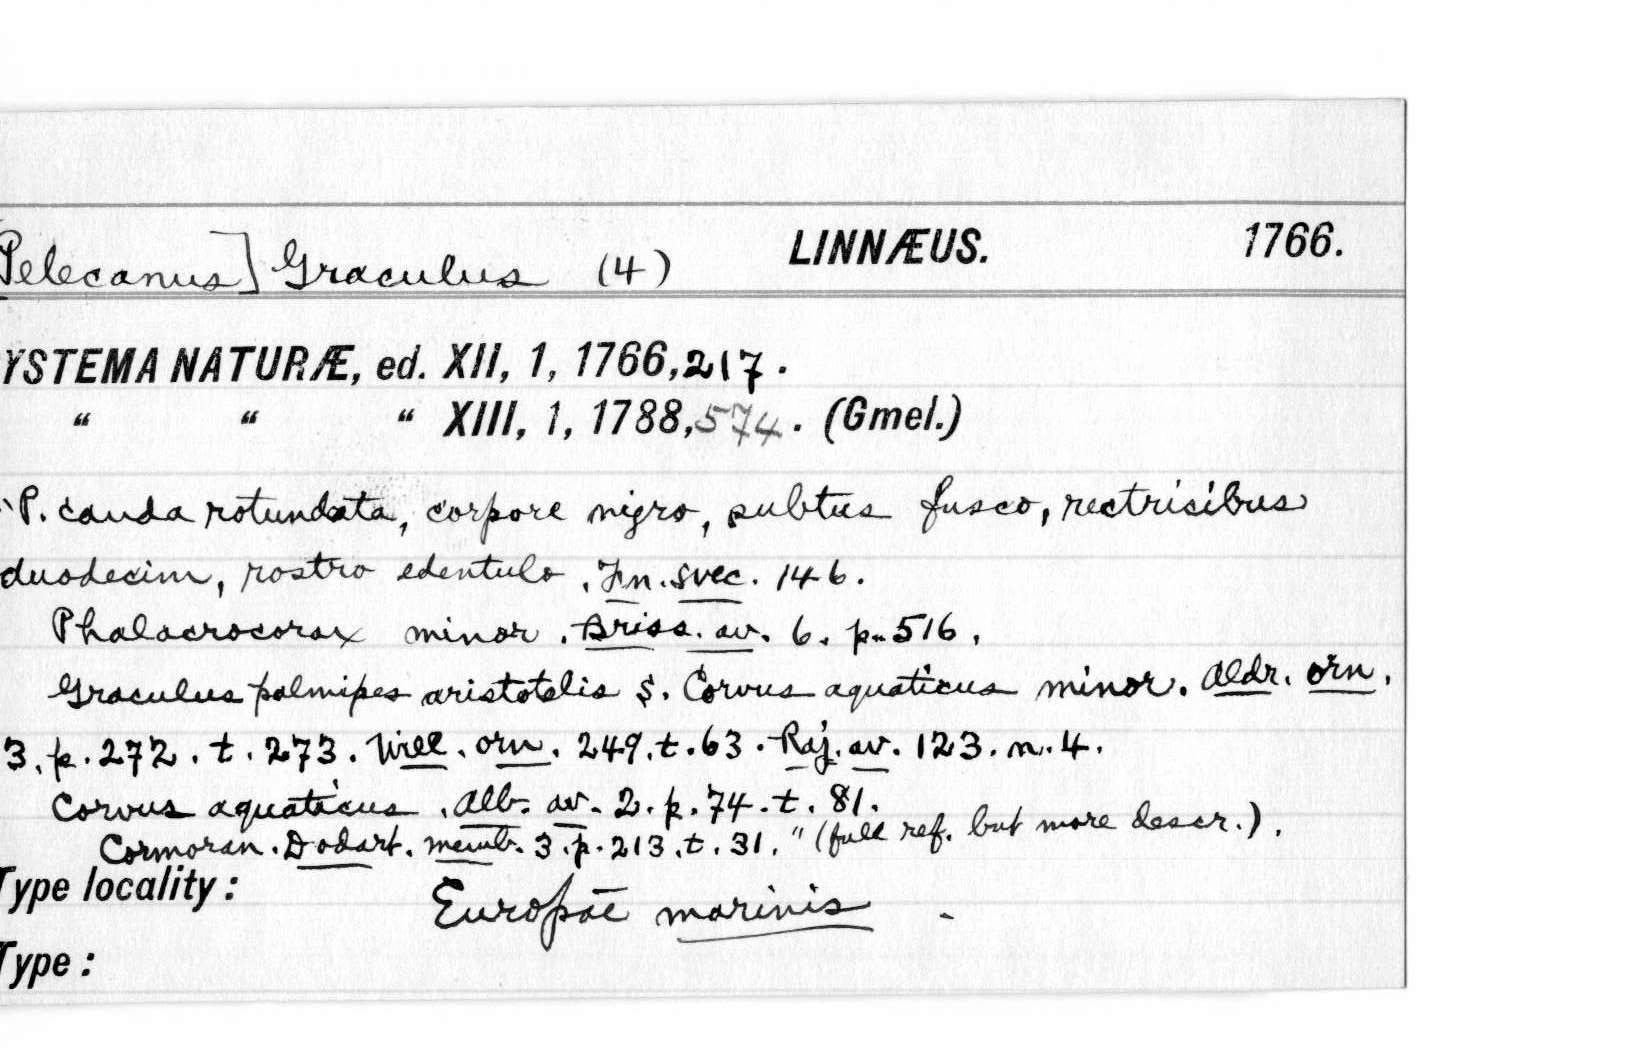 [Pelecanus] Graculus (4) LINNÆUS. 1766.
YSTEMA NATURÆ, ed. XII, 1, 1766, 217.
“ “ “ XIII, 1, 1788, 574. (Gmel.)
"P. cauda rotundata, corpore nigro, subtus fusco, rectricibus
duodecim, rostro edentulo. Fn. svec. 146.
Phalacrocorax minor. Briss. av. 6. p. 516.
Graculus palmipes aristotelis S. Corvus aquaticus minor. Aldr. orn.
3. p. 272. t. 273. Will. orn. 249. t. 63. Raj. av. 123. n. 4.
Corvus aquaticus. Alb. av. 2. p. 74. t. 81.
Cormoran. Dodart. memb. 3. p. 213. t. 31." (full ref. but more descr.).
Type locality: Europāe marinis.
Type: